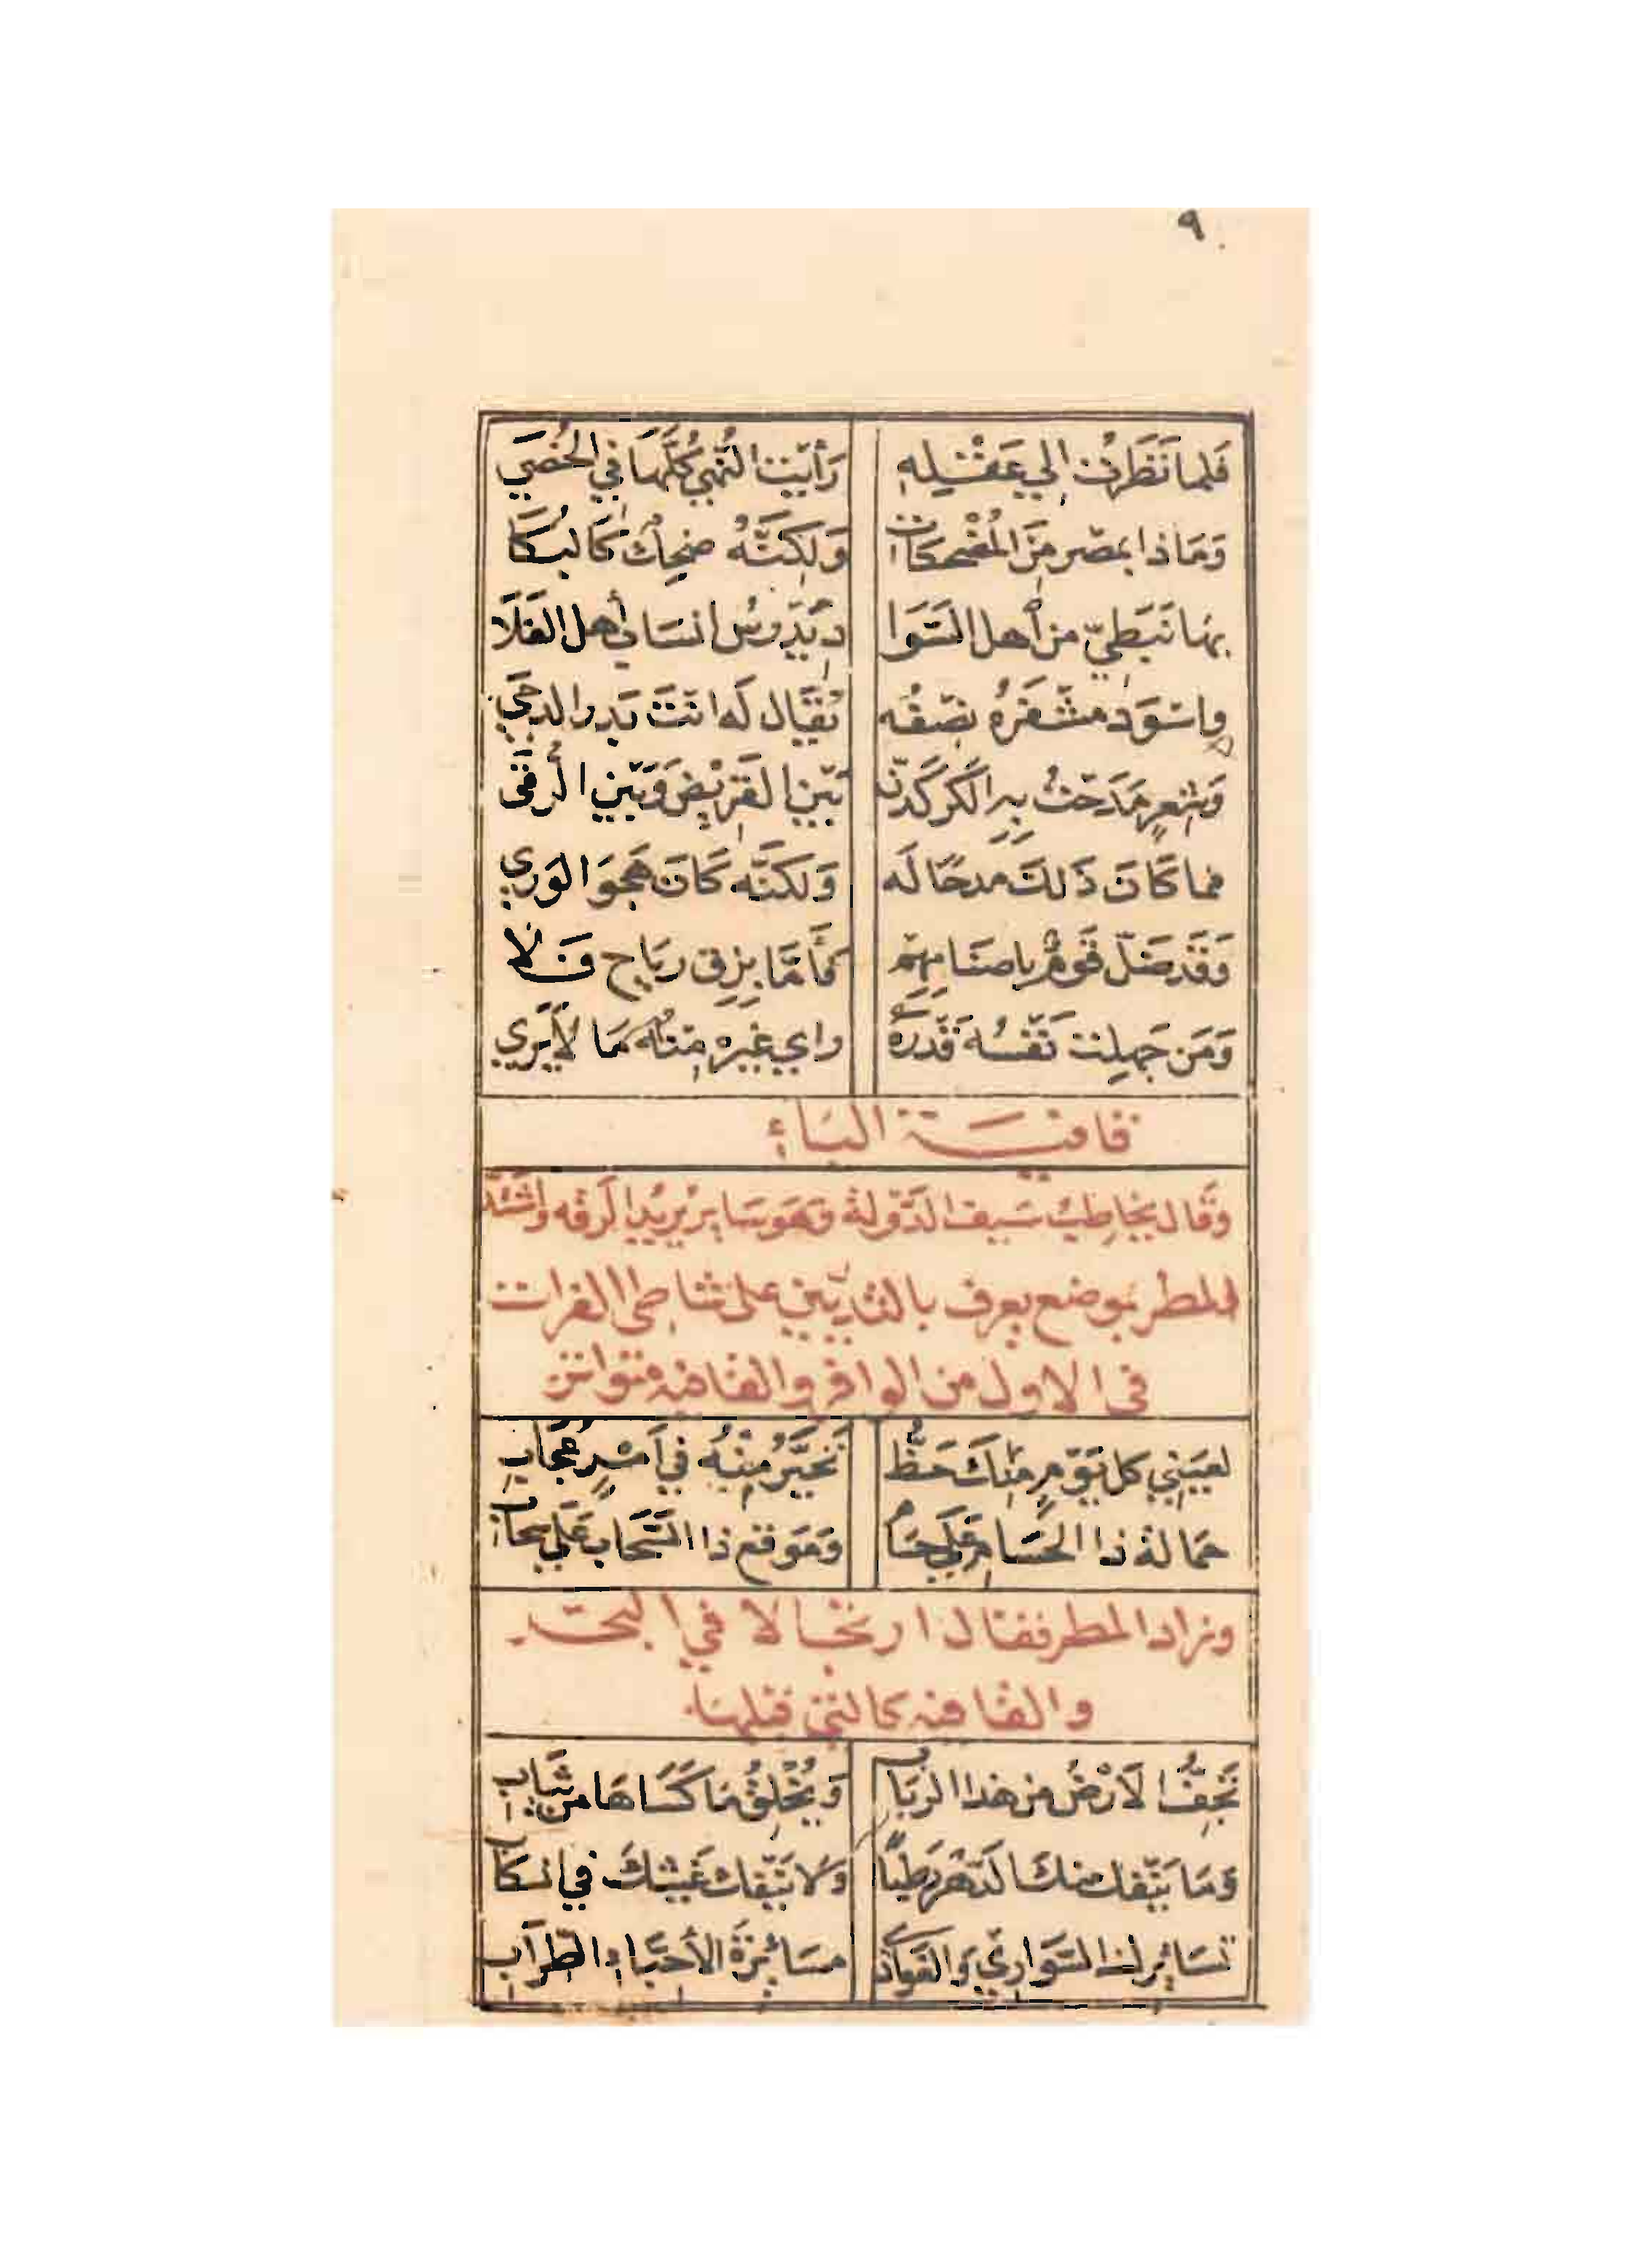 ٩
فَلما نَظَرتُ إلي عَقْلِهِ رَأيْتَ النُّهي كُلَّهَا فِي الخُصَي
وَمَاذا بمصْر مِنَ المُضْحكَات وَلَكِنَّهُ ضحِكٌ كَالبُكَا
بهَا نَبَطِيّ من أهل السَّوَا د يُدَرِّسُ انسَاب أهل الفَلَا
واسْوَد مشْفَرُهُ نصْفُه يُقَال لَه انتَ بَدر الدجَي
وَشِعرٍ مَدَحْتُ بِهِ الكَركَدنّ بَيْنَ القَرِيْض وَبَيْنَ الرُقَى
فما كَانَ ذَلكَ مدحًا لَه وَلَكنَّه كَانَ هَجوَ الوَرَي
وَقَدْ ضَلّ قَومٌ باصنَامِهِم فَأمَّا بِزِق رِيَاحٍ فَلَا
وَمَن جَهِلت نَفْسُه قَدْرَهُ راي غَيره مِنْهُ مَا لَا يَري
قافيَة البَاء
وَقَال يخَاطِبُ سَيف الدَّوْلَة وَهوَ سَايِر يُريدُ الرقَه وَاشْتَدَّ
المطر بموضع يعرف بالثديَيْنِ على شاطئ الفرات
فى الاول من الوافر والقافيه متواتر
لعَيْنِي كل يَوْمٍ مِنْكَ حَظٌّ تَحَيَّرُ مِنْهُ فِي اَمْرٍ عُجَابِ
حمَالة ذا الحُسَام عَلَي حسَامٍ وَمَوقع ذا السَّحَاب عَلَي سحَاب
وزاد المطر فقال ارتجالا في البحر
والقافيه كالتى قبلهَا
تَجِفُّ الَارْضُ من هذا الرَبَاب وَيُخْلِقُ مَا كَسَاهَا من ثيَاب
وَمَا يَنْفك منكَ الدَّهْر رَطبًا وَلا يَنْفك غَيثكَ في انسكَاب
تسَايرك السَّوَارِي وَالغَوَادي مسَايرَةَ الأحبَّاء الطّرَاب